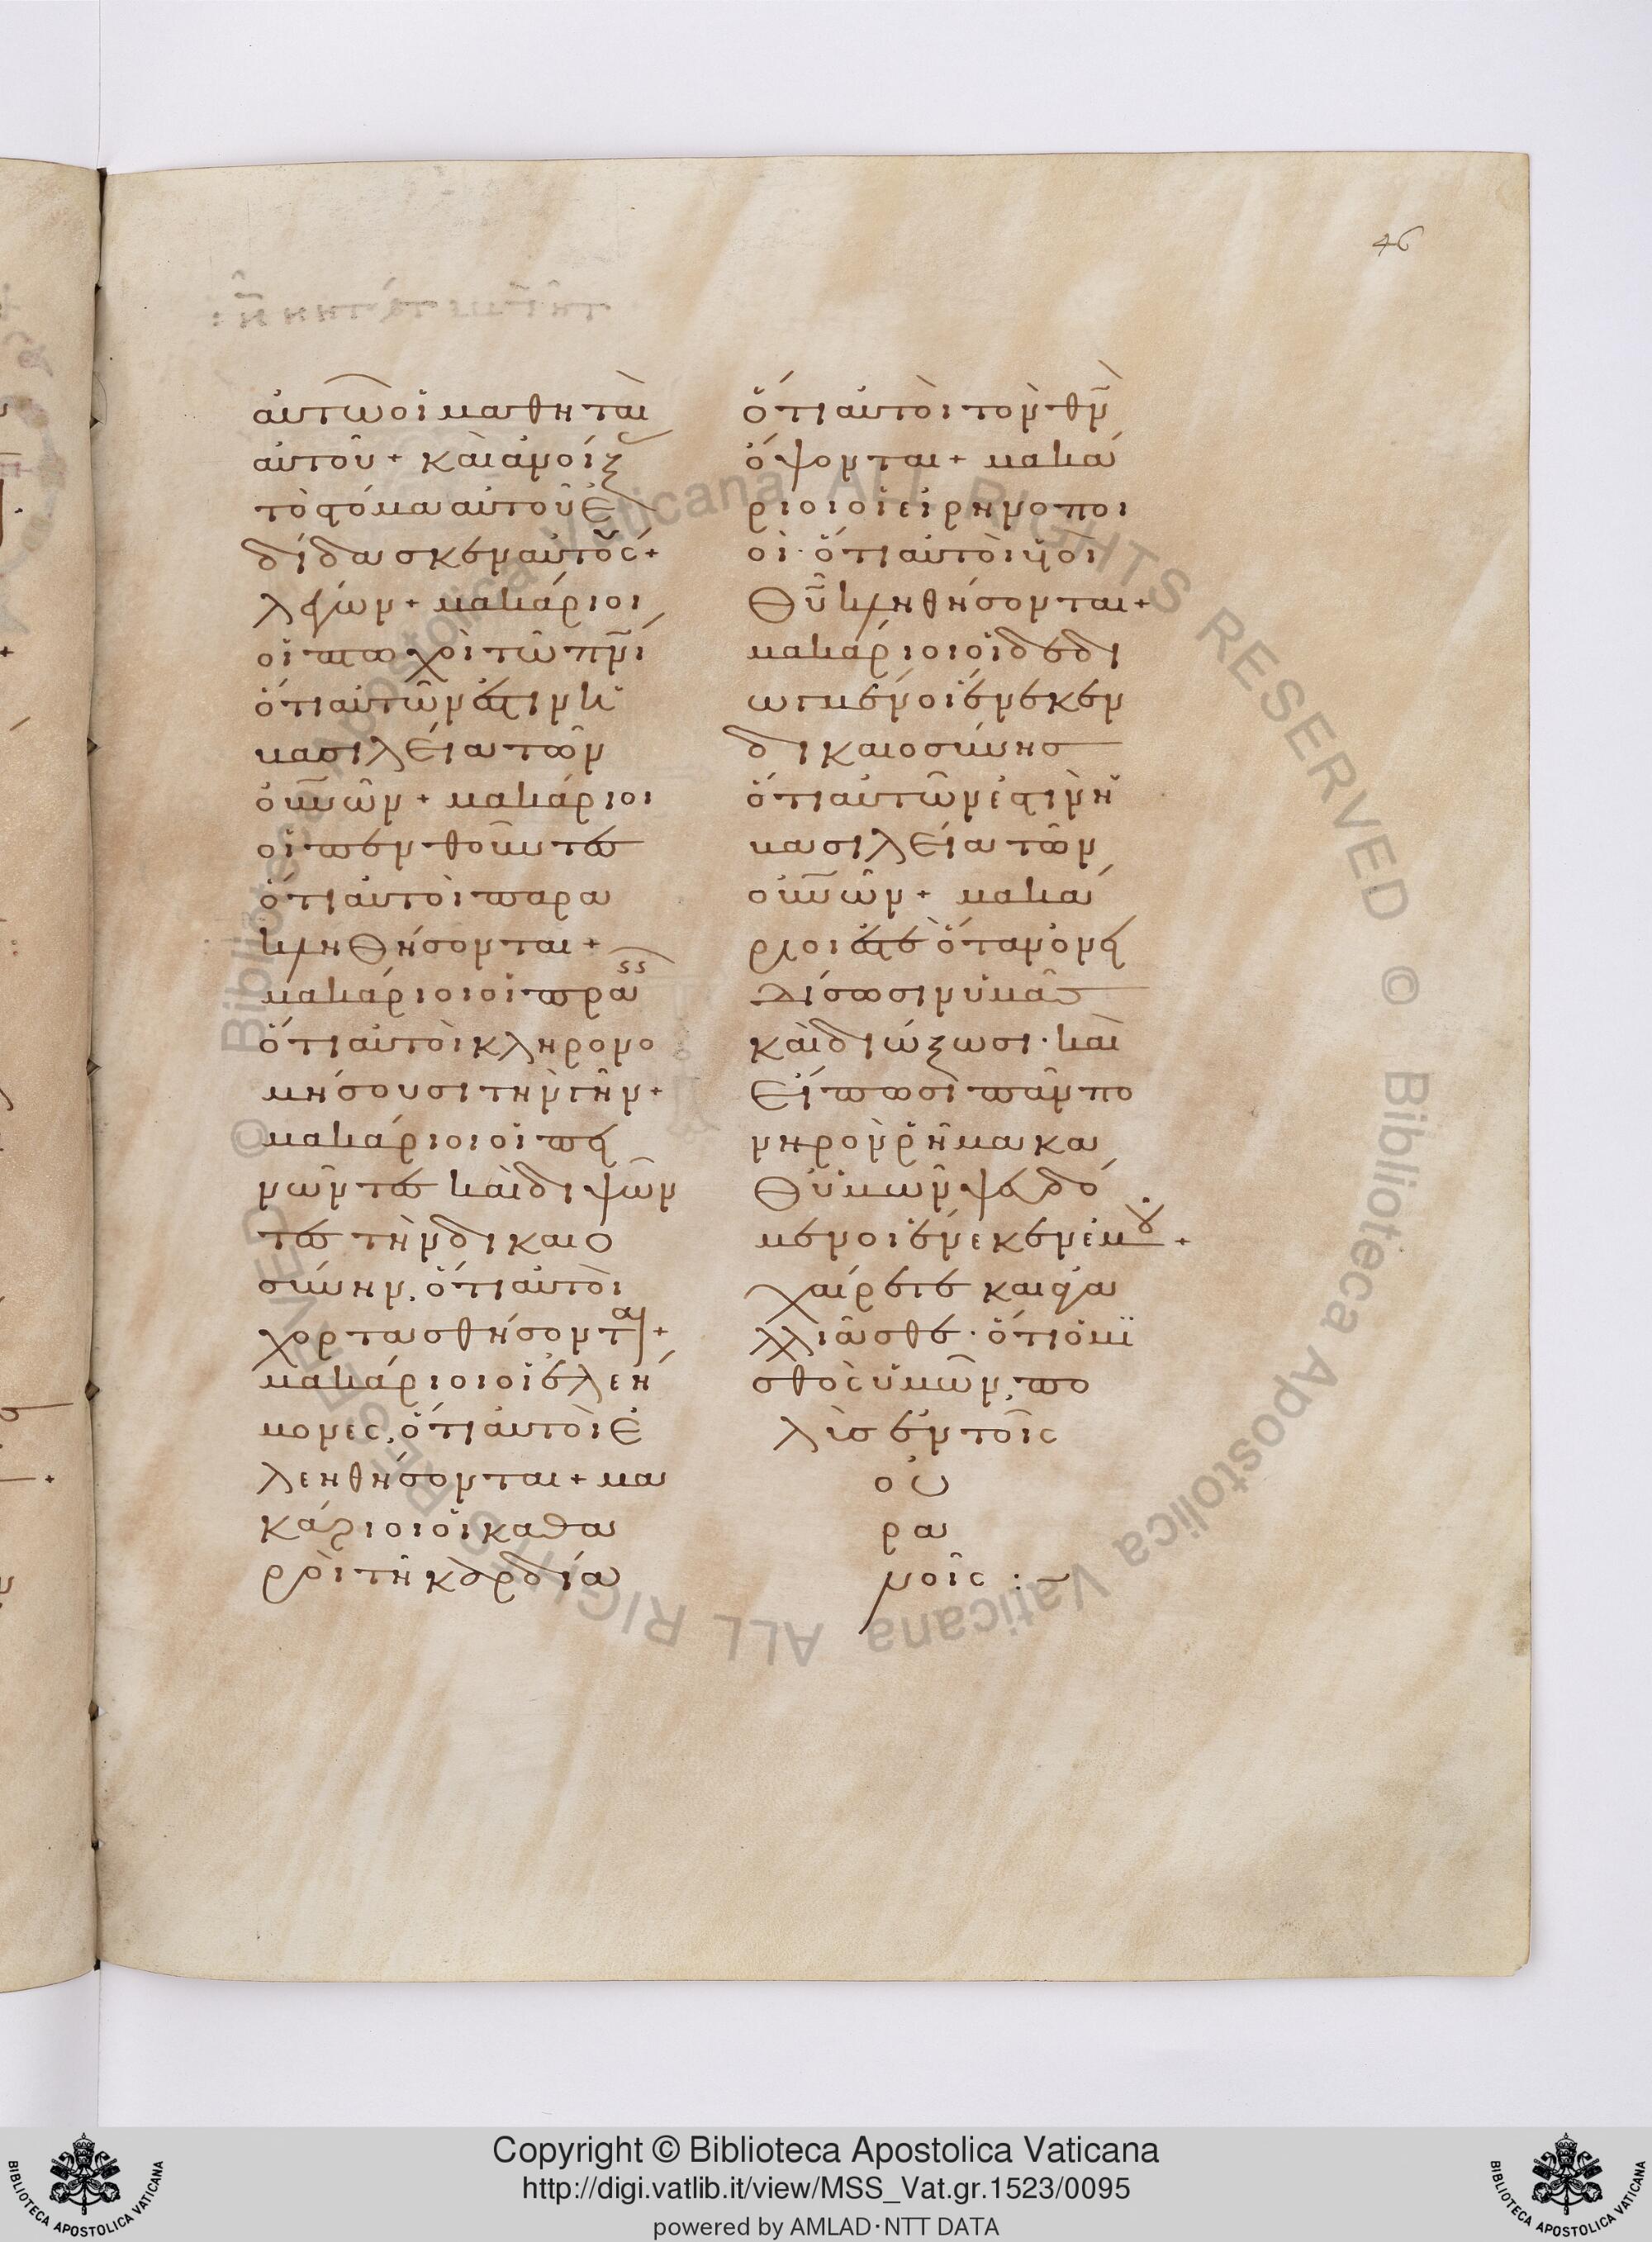 46
αὐτῶ οἱ μαθηταὶ
αὐτοῦ + καὶ ἀνοίξ
τὸ στόμα αὐτοῦ ἐ
δίδασκεν αὐτούς +
λέγων + μακάριοι
οἱ πτωχοὶ τῶ πνΐ
ὅτι αὐτῶν ἐστιν ἡ
βασιλεία τῶν
οὐνῶν + μακάριοι
οἱ πενθοῦντες
ὅτι αὐτοὶ παρα
κληθήσονται +
μακάριοι οἱ πρα
ὅτι αὐτοὶ κληρονο
μήσουσι τὴν γῆν +
μακάριοι οἱ πει
νῶντες καὶ διψῶν
τες τὴν δικαιο
σύνην. ὅτι αὐτοὶ
χορτασθήσονται +
μακάριοι οἱ ἐλεή
μονες. ὅτι αὐτοὶ ἐ
λεηθήσονται + μα
κάριοι οἱ καθα
ροὶ τῆ καρδία
ὅτι αὐτοὶ τὸν θν
ὄψονται + μακά
ριοι οἱ εἰρηνοποι
οὶ · ὅτι αὐτοὶ υἱοὶ
θυ κληθήσονται +
μακάριοι οἱ δεδι
ωγμένοι ἕνεκεν
δικαιοσύνης
ὅτι αὐτῶν ἐστιν ἡ
βασιλεία τῶν
οὐνῶν + μακά
ριοι ἐστὲ ὅταν ὀνει
δίσωσιν ὑμᾶς
καὶ διώξωσι · καὶ
εἴπωσι πᾶν πο
νηρὸν ῥῆμα κα
θ' ὑμῶν ψευδό
μενοι ἕνεκεν ἐμοῦ +
χαίρετε καὶ ἀγα
λλιᾶσθε · ὅτι ὁ μι
σθὸς ὑμῶν πο
λὺς ἐν τοῖς
οὐ
ρα
νοῖς : ~
© Biblioteca Apostolica Vaticana ALL RIGHTS RESERVED © Biblioteca Apostolica Vaticana ALL RIGHTS RESERVED
Copyright © Biblioteca Apostolica Vaticana
http://digi.vatlib.it/view/MSS_Vat.gr.1523/0095
powered by AMLAD·NTT DATA
BIBLIOTECA APOSTOLICA VATICANA
BIBLIOTECA APOSTOLICA VATICANA